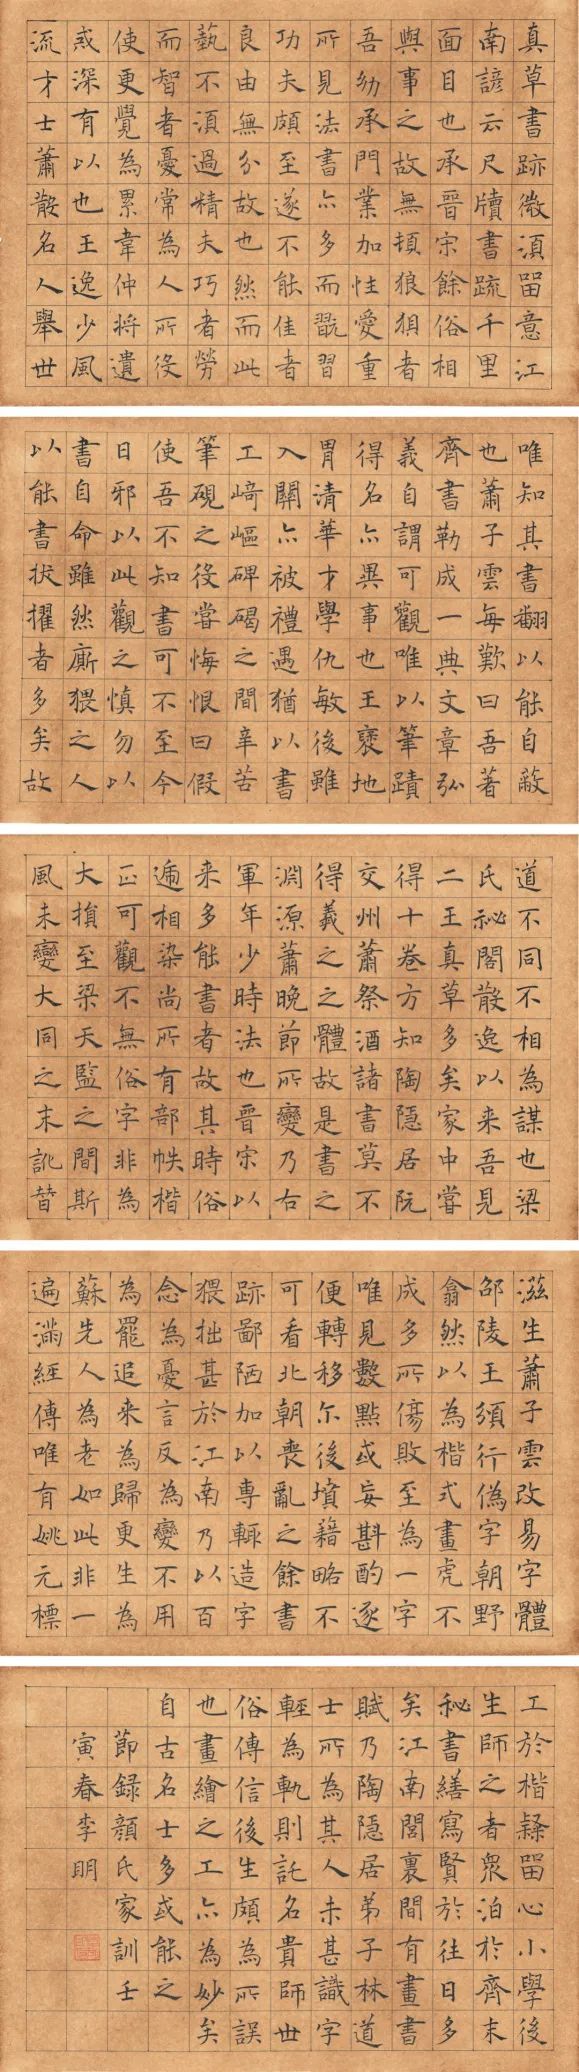 真草書跡微須留意江
南諺云尺牘書疏千里
面目也承晉宋餘俗相
與事之故無頓狼狽者
吾幼承門業加性愛重
所見法書亦多而翫習
功夫頗至遂不能佳者
良由無分故也然而此
藝不須過精夫巧者勞
而智者憂常為人所役
使更覺為累韋仲將遺
或深有以也王逸少風
流才士蕭散名人舉世
唯知其書翻以能自蔽
也蕭子雲每歎曰吾著
齊書勒成一典文章弘
義自謂可觀唯以筆蹟
得名亦異事也王褒地
胄清華才學仇敏後雖
入關亦被禮遇猶以書
工崎嶇碑碣之間辛苦
筆硯之役嘗悔恨曰假
使吾不知書可不至今
日邪以此觀之慎勿以
書自命雖然廝猥之人
以能書狀擢者多矣故
道不同不相為謀也梁
氏秘閣散逸以来吾見
二王真草多矣家中嘗
得十卷方知陶隱居阮
交州蕭祭酒諸書莫不
得羲之之體故是書之
淵源蕭晚節所變乃右
軍年少時法也晉宋以
来多能書者故其時俗
遞相染尚所有部帙楷
正可觀不無俗字非為
大損至梁天監之間斯
風未變大同之末訛替
滋生蕭子雲改易字體
邵陵王頒行偽字朝野
翕然以為楷式畫虎不
成多所傷敗至為一字
唯見數點或妄斟酌逐
便轉移尔後墳籍略不
可看北朝喪亂之餘書
跡鄙陋加以專輒造字
猥拙甚於江南乃以百
念為憂言反為變不用
為罷追来為歸更生為
蘇先人為老如此非一
遍滿經傳唯有姚元標
工於楷隸留心小學後
生師之者眾洎於齊末
秘書繕寫賢於往日多
矣江南閭裏間有畫書
賦乃陶隱居弟子林道
士所為其人未甚識字
輕為軌則託名貴師世
俗傳信後生頗為所誤
也畫繪之工亦為妙矣
自古名士多或能之
節録顏氏家訓壬
寅春李明